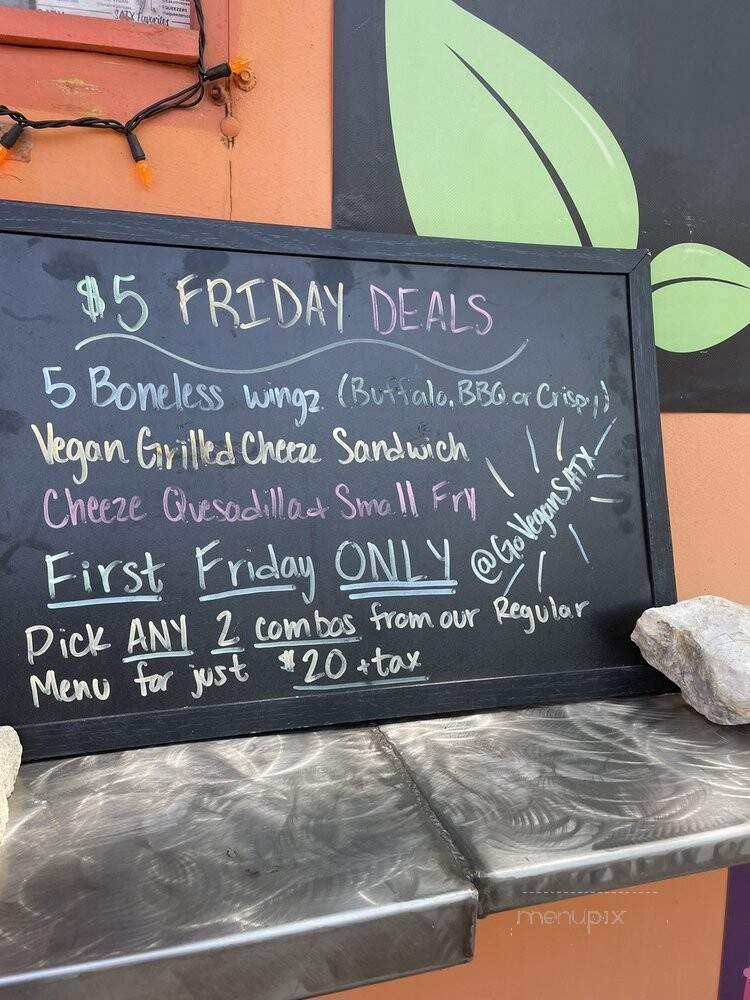 SATX Favorites
$5 FRIDAY DEALS
5 Boneless wingz (Buffalo, BBQ or Crispy)
Vegan Grilled Cheeze Sandwich
Cheeze Quesadilla + Small Fry
@GoVeganSATX
First Friday ONLY
Pick ANY 2 combos from our Regular
Menu for just $20 + tax
menupix